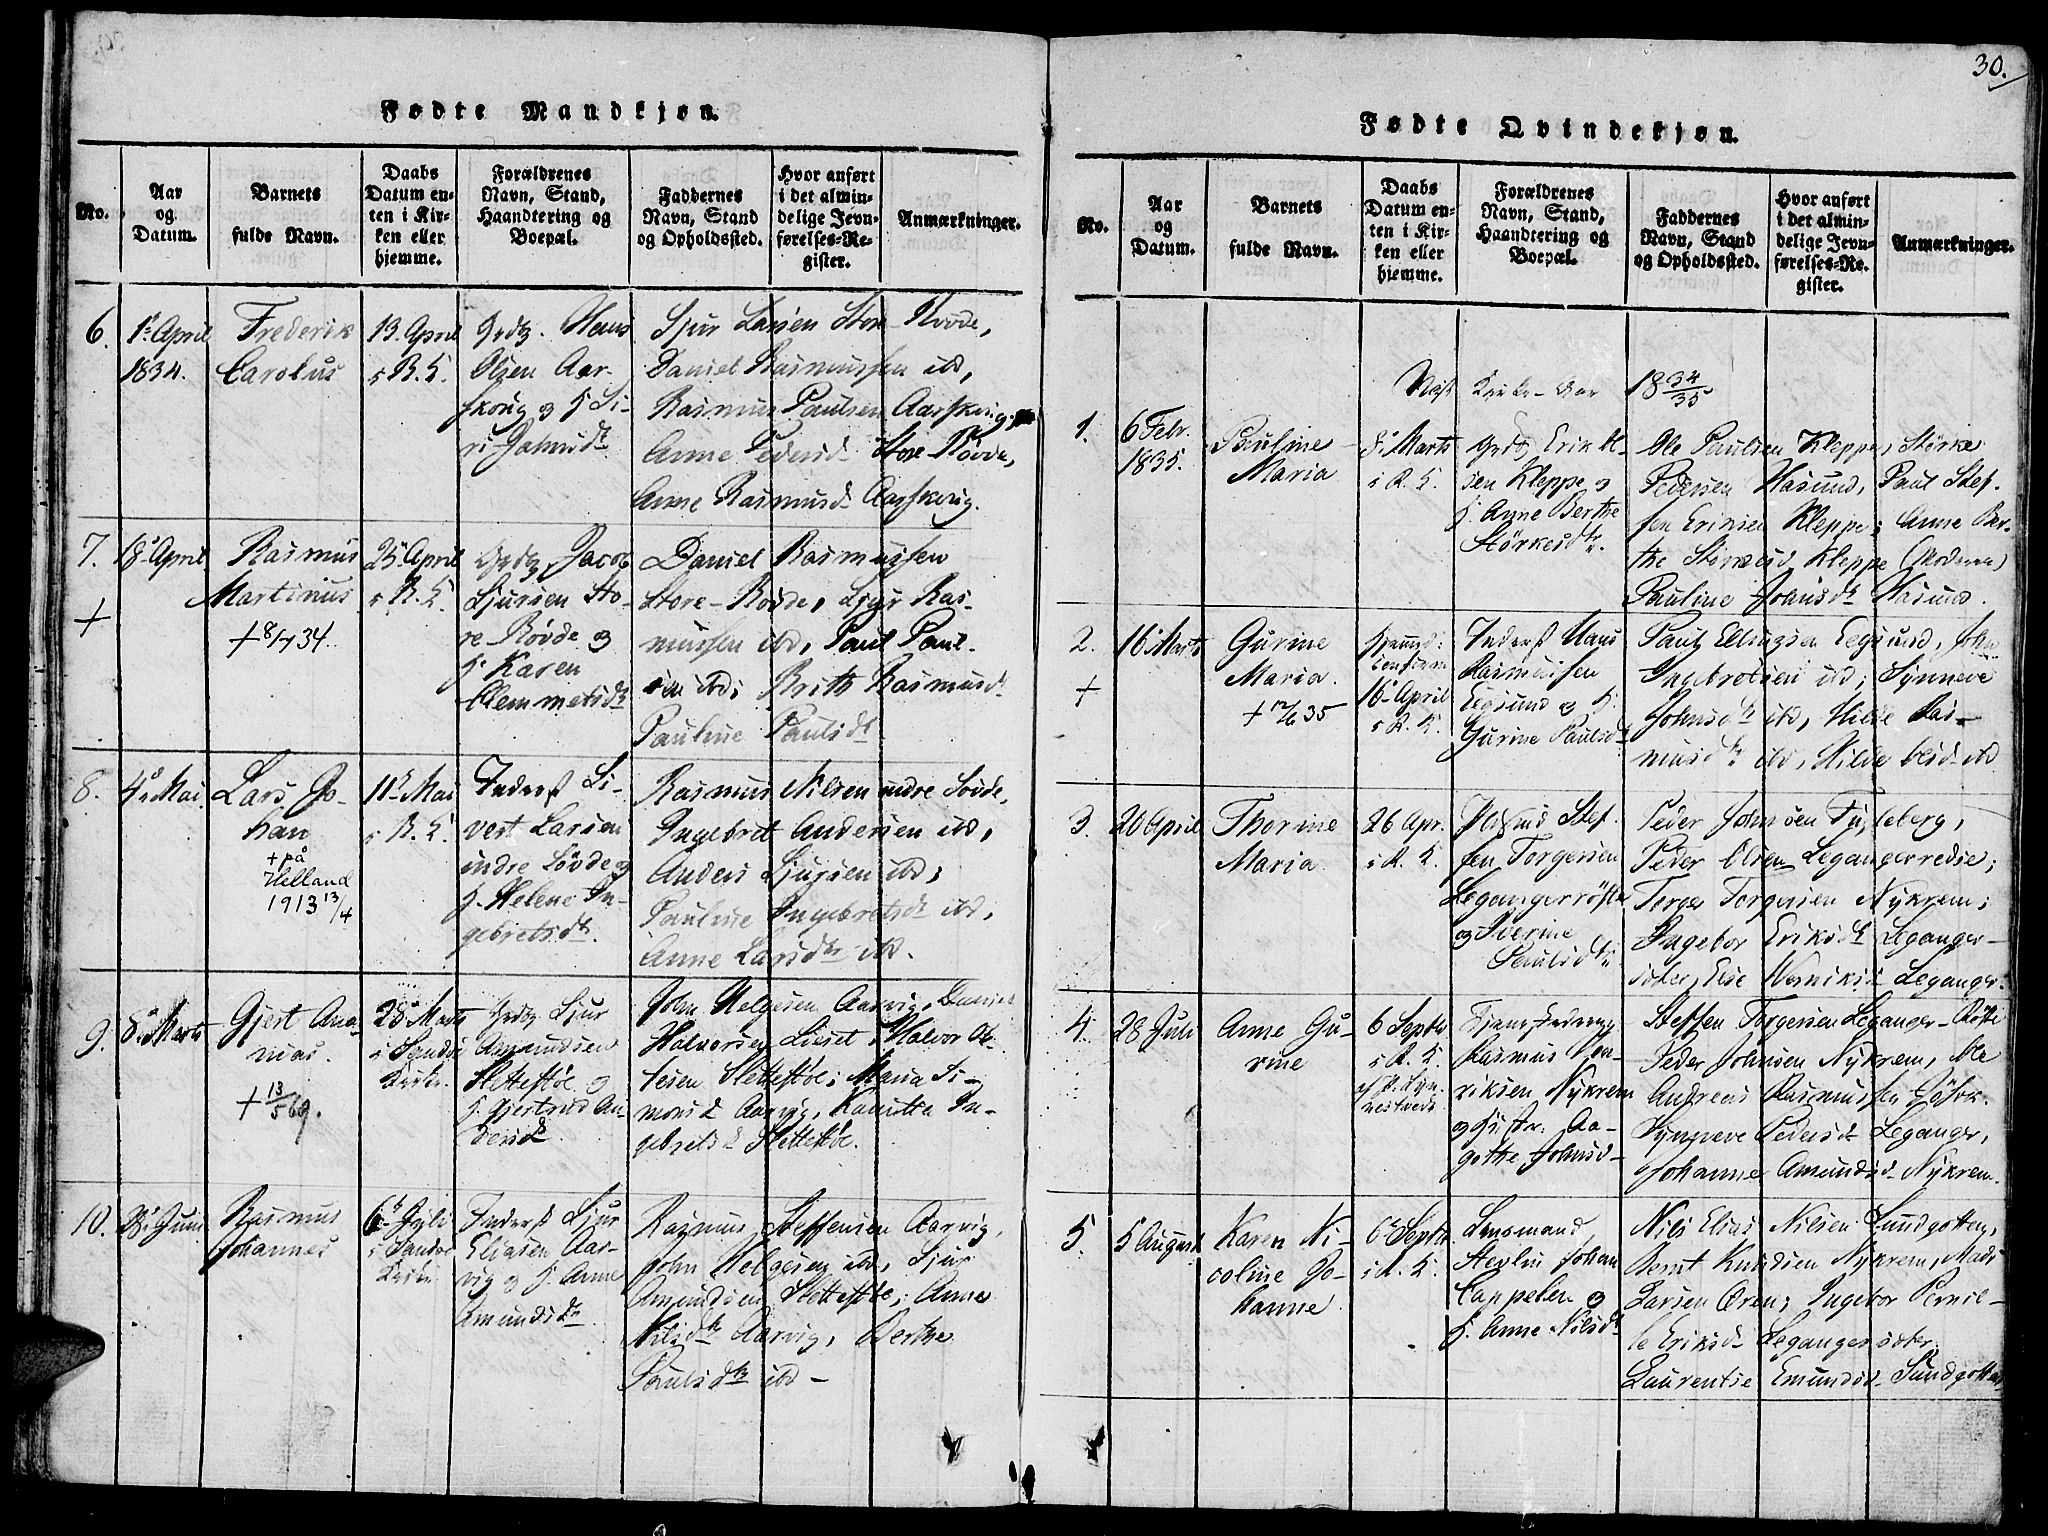 30.
Fødte Mandkjøn.
No.
Aar og Datum.
Barnets fulde Navn.
Daabs Datum enten i Kirken eller hjemme.
Forældrenes Navn, Stand, Haandtering og Boepæl.
Faddernes Navn, Stand og Opholdssted.
Hvor anført i det almindelige Jevnførelses-Register.
Anmærkninger.
6.
1ste April
1834.
Frederik
Carolus
13. April
i R. K.
Grdbr. Hans
Olsen Aar-
skoug og H. Si-
ri Johnsdr
Sjur Larsen Store-Rovde,
Daniel Rasmussen ibd,
Rasmus Paulsen Aarskoug,
Anne Pedersd Store-Røvde,
Anne Rasmusd Aarskoug.
7.
+
18 April
Rasmus
Martinus
+ 8/7 34.
25 April
i R. K.
Jacob
Sjursen Sto-
re-Røvde og
H. Karen
Clemmetsdr
Daniel Rasmussen
Store-Rovde, Sjur Ras-
mussen ibd, Paul Paul-
sen ibd; Brith Rasmusd
Pauline Paulsdr
8.
4 Mai
Lars Jo-
han
+ på
Helland
1913 13/4
11 Mai
i R. K.
Inderst Si-
vert Larsen
indre Søvde og
H. Helene In-
gebretsdr.
Rasmus Nilsen indre Søvde,
Ingebret Andersen ibd,
Anders Sjursen ibd;
Pauline Ingebretsdr ibd,
Anne Larsdr ibd.
9.
8 Marts
Gjert Ana-
nias.
+ 13/5 69.
28 Marts
i Sandø
Kirke.
Sjur
Amundsen
Slettestøl og
H. Gjertrud An-
dersd
John Helgesen Aarvig, Daniel
Halvorsen Liset, Halvor
Slettestøl; Maria Si-
monsd Aarvig, In-
gebretsd Slettestøl.
10.
28 Juni
Rasmus
Johannes
6 Juli
i Sandø
Kirke
Inderst Sjur
Eliasen Aar-
vig og H. Anne
Amundsdr
Rasmus Steffensen Aarvig,
John Helgesen ibd, Sjur
Amundsen Slettestøl; Anne
Nilsdr Aarvig, Berthe
Paulsdr ibd-
Fødte Qvindekjøn.
No.
Aar og Datum.
Barnets fulde Navn.
Daabs Datum enten i Kirken eller hjemme.
Forældrenes Navn, Stand, Haandtering og Boepæl.
Faddernes Navn, Stand og Opholdssted.
Hvor anført i det almindelige Jevnførelses-Register.
Anmærkninger.
Kirke-Aar 18 34/35
1.
6 Febr.
1835.
Pauline
Maria
8 Marts
i R. K.
Erik Ol-
sen Kleppe og
H. Anne Berthe
Størkesdr.
Ole Paulsen Kleppe, Størke
Pedersen Hasund, Paul Stef-
fen Eriksen Kleppe; Anne Ber-
the Størkesd Kleppe (Moderen)
Pauline Johnsdr Hasund.
2.
+
16 Marts
Gurine
Maria.
+ 12/6 35
16 April
i R. K.
Inderst Hans
Rasmussen
Eegsund og H.
Gurine Paulsd
Paul Ellingsen Eegsund, John
Ingebretsen ibd; Synneve
Johnsdr ibd, Hilde Ras-
musdr ibd, Hilde Olsd ibd
3.
20 April
Thorine
Maria
26 Apr.
i R. K.
Stef-
fen Torgersen
Legangerrøste
og Iverine
Paulsdr
Peder Johnsen Tugleberg,
Peder Olsen Legangerredse;
Torger Torgersen Nykrem;
Ingebor Eriksdr Leganger-
sæter, Else Leganger
4.
28 Juli
Anne Gu-
rine
6 Septbr
i R. K.
Rasmus Hen-
riksen Nykrem
og Hustr. Aa-
gothe Johnsd-
Steffen Torgersen Leganger-Røste
Peder Johnsen Nykrem, Ole
Andreas Rasmussen
Synneve Pedersd- Leganger,
Johanne Amundsd- Nykrem.
5.
5 August
Karen Ni-
coline Jo-
hanne
6 Septbr
i R. K.
Lensmand
Johan
Cappelen og
H. Anne Nilsdr
Nils Elias Nilsen Sundgotten,
Bernt Knudsen Nykrem, Mads
Larsen Ører; Ingebor Pernil-
le Eriksd- Legangersæter,
Laurentse Emundsd- Sundgotten